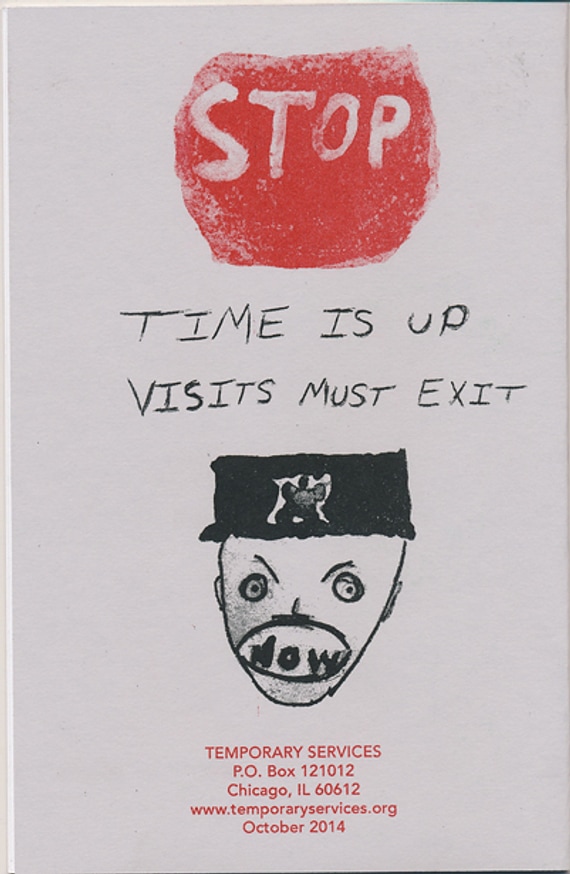 STOP
TIME IS UP
VISITS MUST EXIT
NOW
TEMPORARY SERVICES
P.O. Box 121012
Chicago, IL 60612
www.temporaryservices.org
October 2014